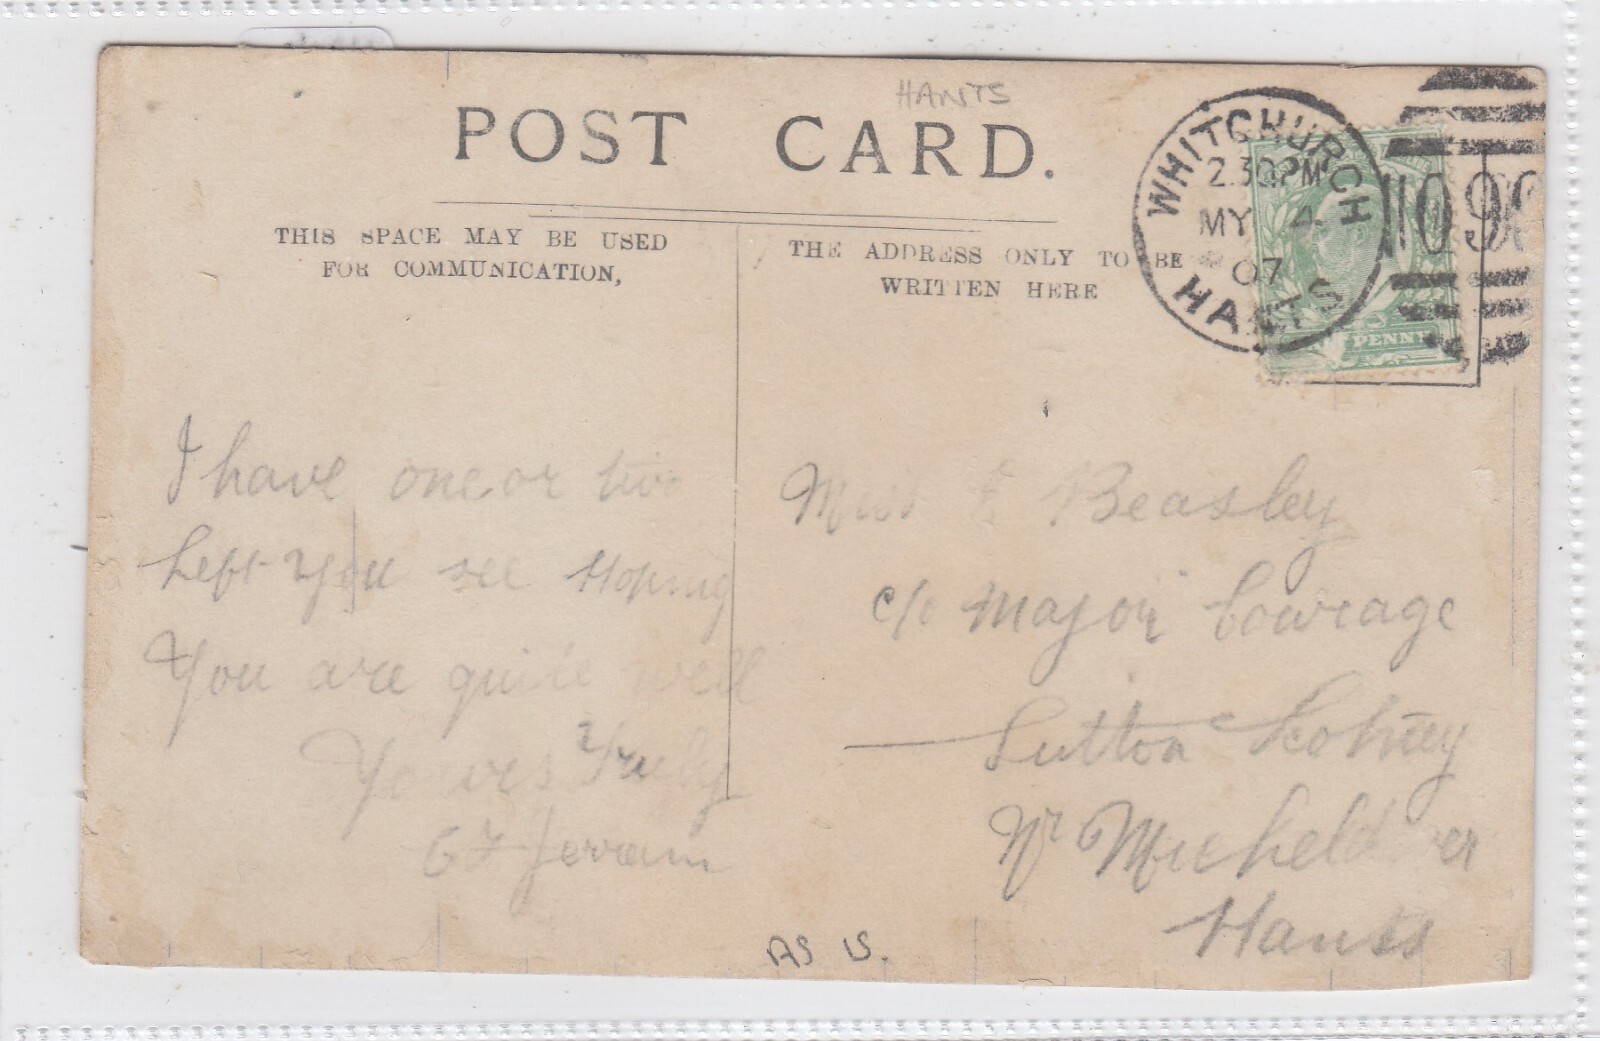 HANTS
POST CARD.
THIS SPACE MAY BE USED
FOR COMMUNICATION,
THE ADDRESS ONLY TO BE
WRITTEN HERE
WHITCHURCH
2.30PM
MY 4
07
HANTS
PENNY
I have one or two
left you see Hoping
You are quite well
Yours Truly
Jerram
Miss Beasley
c/o Major Courage
Sutton Scotney
Nr Micheldever
Hants
AS IS.